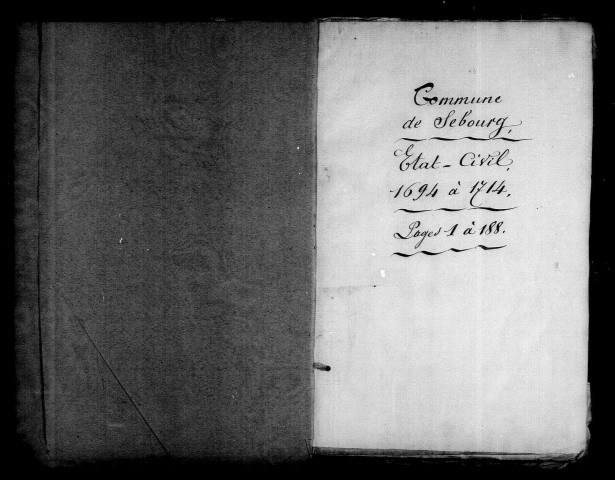 Commune
de Sebourg,
Etat-Civil,
1694 à 1714.
Pages 1 à 188.